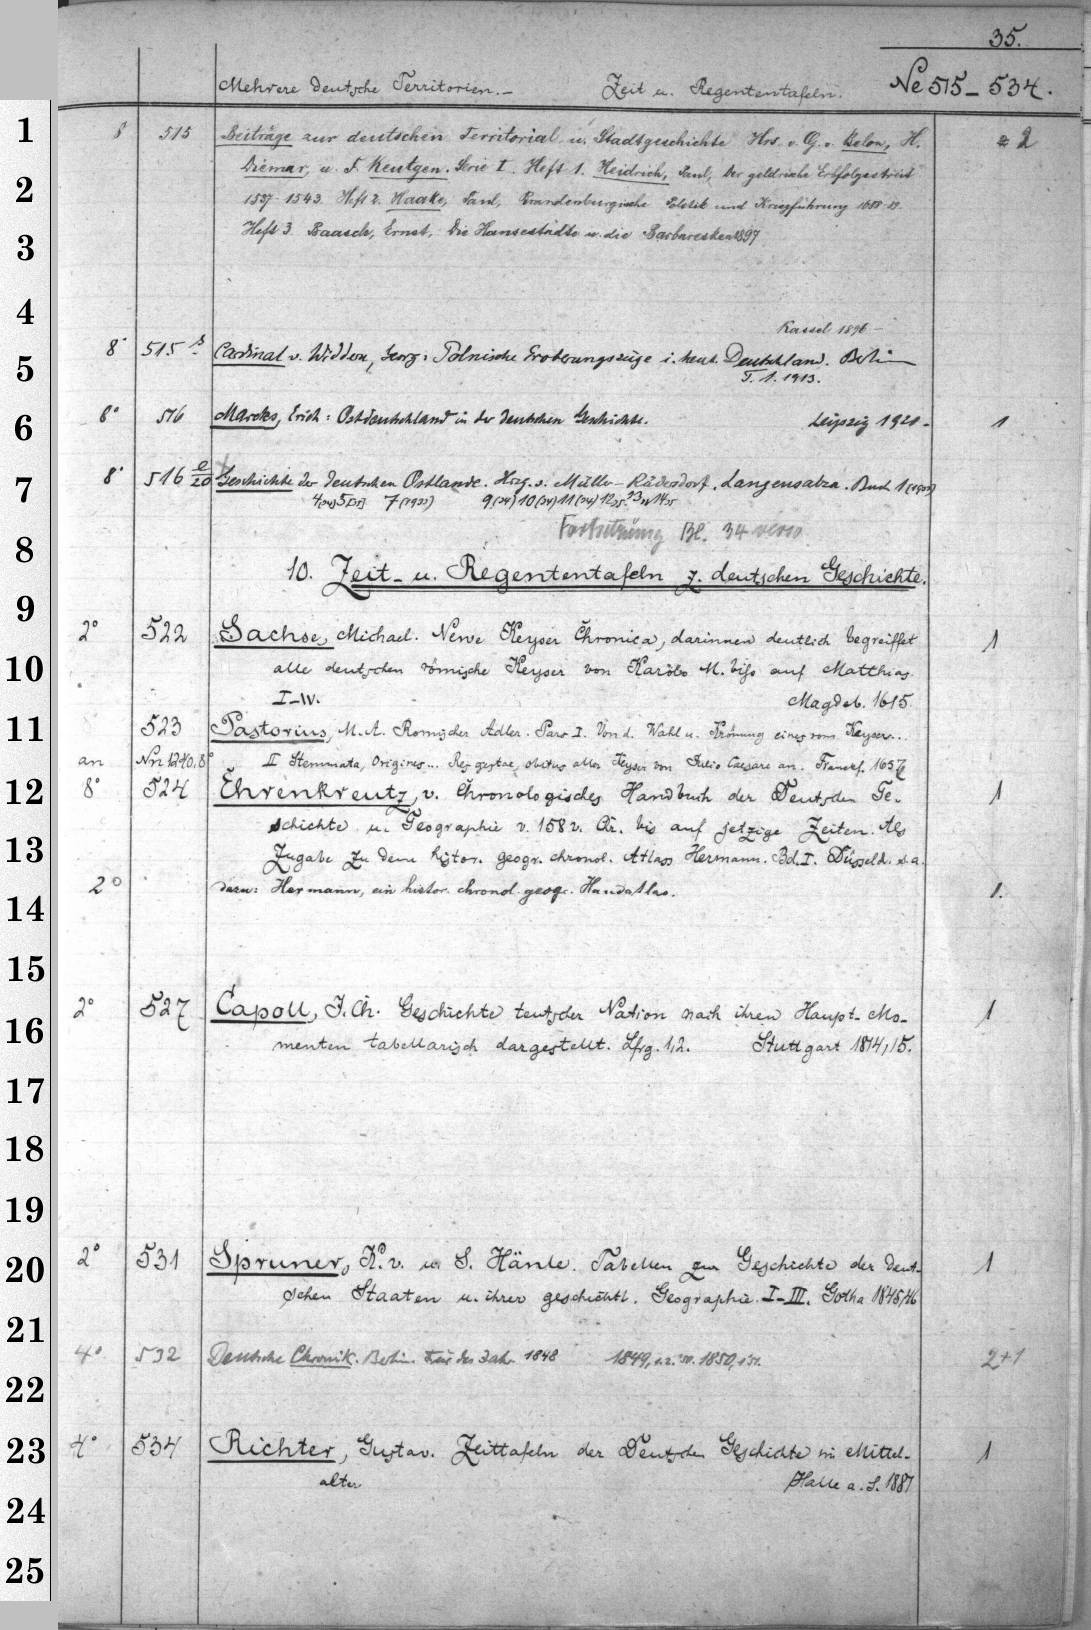 35.
Mehrere deutsche Territorien.- Zeit u. Regententafeln. Ne 515-534.
1
8 515 Beiträge zur deutschen Territorial u. Stadtgeschichte Hrs. v. G. v. Below, H. 2
2
Diemar, u. F. Keutgen. Serie I. Heft 1. Heidrich, Paul, Der geldrische Erbfolgestreit
1537-1543. Heft 2. Haake, Paul, Brandenburgische Politik und Kriegführung 1688-89.
3
Heft 3 Baasch, Ernst, Die Hansestädte u. die Barbaresken 1897
4
Kassel 1896-
5
8° 515 Cardinal v. Widdern, Georg: Polnische Eroberungszüge i. heut. Deutschland. Berlin
T. 1. 1913.
6
8° 516 Marcks, Erich: Ostdeutschland in der deutschen Geschichte. Leipzig 1920. 1
7
8° 516 e/20 Geschichte der deutschen Ostlande. Hrsg. v. Müller-Rüdersdorf. Langensalza. Buch 1 (1923)
4(24) 5[25] 7(1923) 9(24) 10(24) 11(24) 12 25. 13 14 25
Fortsetzung Bl. 34 verso
8
10. Zeit- u. Regententafeln z. deutschen Geschichte.
9
2° 522 Sachse, Michael. Newe Keyser Chronica, darinnen deutlich begreiffet 1
10
alle deutschen römische Keyser von Karolo M. biss auf Matthias.
I-IV. Magdeb. 1615.
11
523 Pastorius, M. A. Romischer Adler. Pars I. Von d. Wahl u. Krönung eines rom. Keyser...
an Nn 1240. 8° II Stemmata, Origines... Res gestae, obitus aller Keyser von Julio Caesare an. Franckf. 1657
12
8° 524 Ehrenkreutz, v. Chronologisches Handbuch der Deutschen Ge- 1
schichte u. Geographie v. 158 v. Chr. bis auf jetzige Zeiten. Als
13
Zugabe zu dem histor. geogr. chronol. Atlass Hermann. Bd. I. Düsseld. s. a.
2° dazu: Hermann, ein histor. chronol. geogr. Handatlas. 1.
14
15
2° 527 Capoll, J. Ch. Geschichte teutscher Nation nach ihren Haupt-Mo- 1
16
menten tabellarisch dargestellt. Lfrg. 1,2. Stuttgart 1814,15.
17
18
19
2° 531 Spruner, K. v. u. S. Hänle. Tabellen zur Geschichte der deut- 1
20
schen Staaten u. ihrer geschichtl. Geographie. I-III. Gotha 1845/46
21
4° 532 Deutsche Chronik. Berlin. Für das Jahr 1848 1849, 1850, 2+1
22
4° 534 Richter, Gustav. Zeittafeln der Deutschen Geschichte im Mittel- 1
23
alter Halle a. S. 1881
24
25